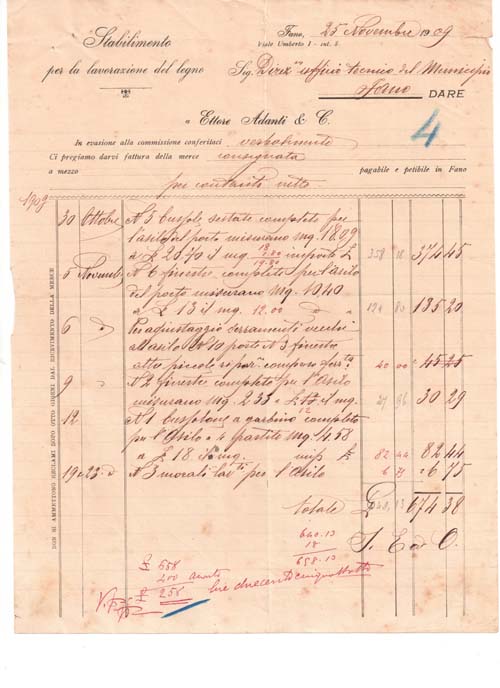 Stabilimento
per la lavorazione del legno
Fano, 25 Novembre 1909
Viale Umberto I - int. 5.
Sig. Direz. ufficio tecnico del Municipio
Fano DARE
a Ettore Adanti & C.
4
In evasione alla commissione conferitaci verbalmente
Ci pregiamo darvi fattura della merce consegnata
a mezzo pagabile e petibile in Fano
per contanti netto
1909
30 Ottobre N 5 bussole sestate complete per
l'asilo del porto misurano mq. 18.09
a £ 20.70 il mq importo £ 358 18 374 45
19.80
5 Novembre N 6 finestre complete per l'asilo
del porto misurano mq. 10,40
a £ 13 il mq. 12.00 124 80 135 20
6 Per aggiustaggio serramenti vecchi
all'asilo N 10 porte N 3 finestre
altre piccole 40 00 45 25
9 N 2 finestre complete per l'Asilo
misurano mq. 2.33 a £ 13 il mq. 27 96 30 29
12
12 N 1 bussolone a garbino completo
per l'Asilo a 4 partite mq. 4.58
a £ 18 il mq. imp £ 82 44 82 44
19 e 23 N 3 morali per l'Asilo 6 75 6 75
totale £ 640,13 674 38
S. E. ed O.
640.13
18
658.13
£ 658
400 acconto
£ 258 lire duecentocinquantotto
NON SI AMMETTONO RECLAMI DOPO OTTO GIORNI DAL RICEVIMENTO DELLA MERCE